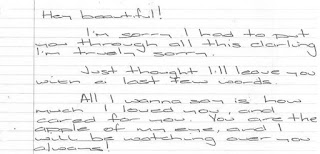 Hey beautiful!
I'm sorry I had to put
you through all this darling
I'm truely sorry.
Just thought I'll leave you
with a last few words.
All I wanna say is how
much I loved you, and
cared for you. You are the
apple of my eye, and I
will be watching over you
always!